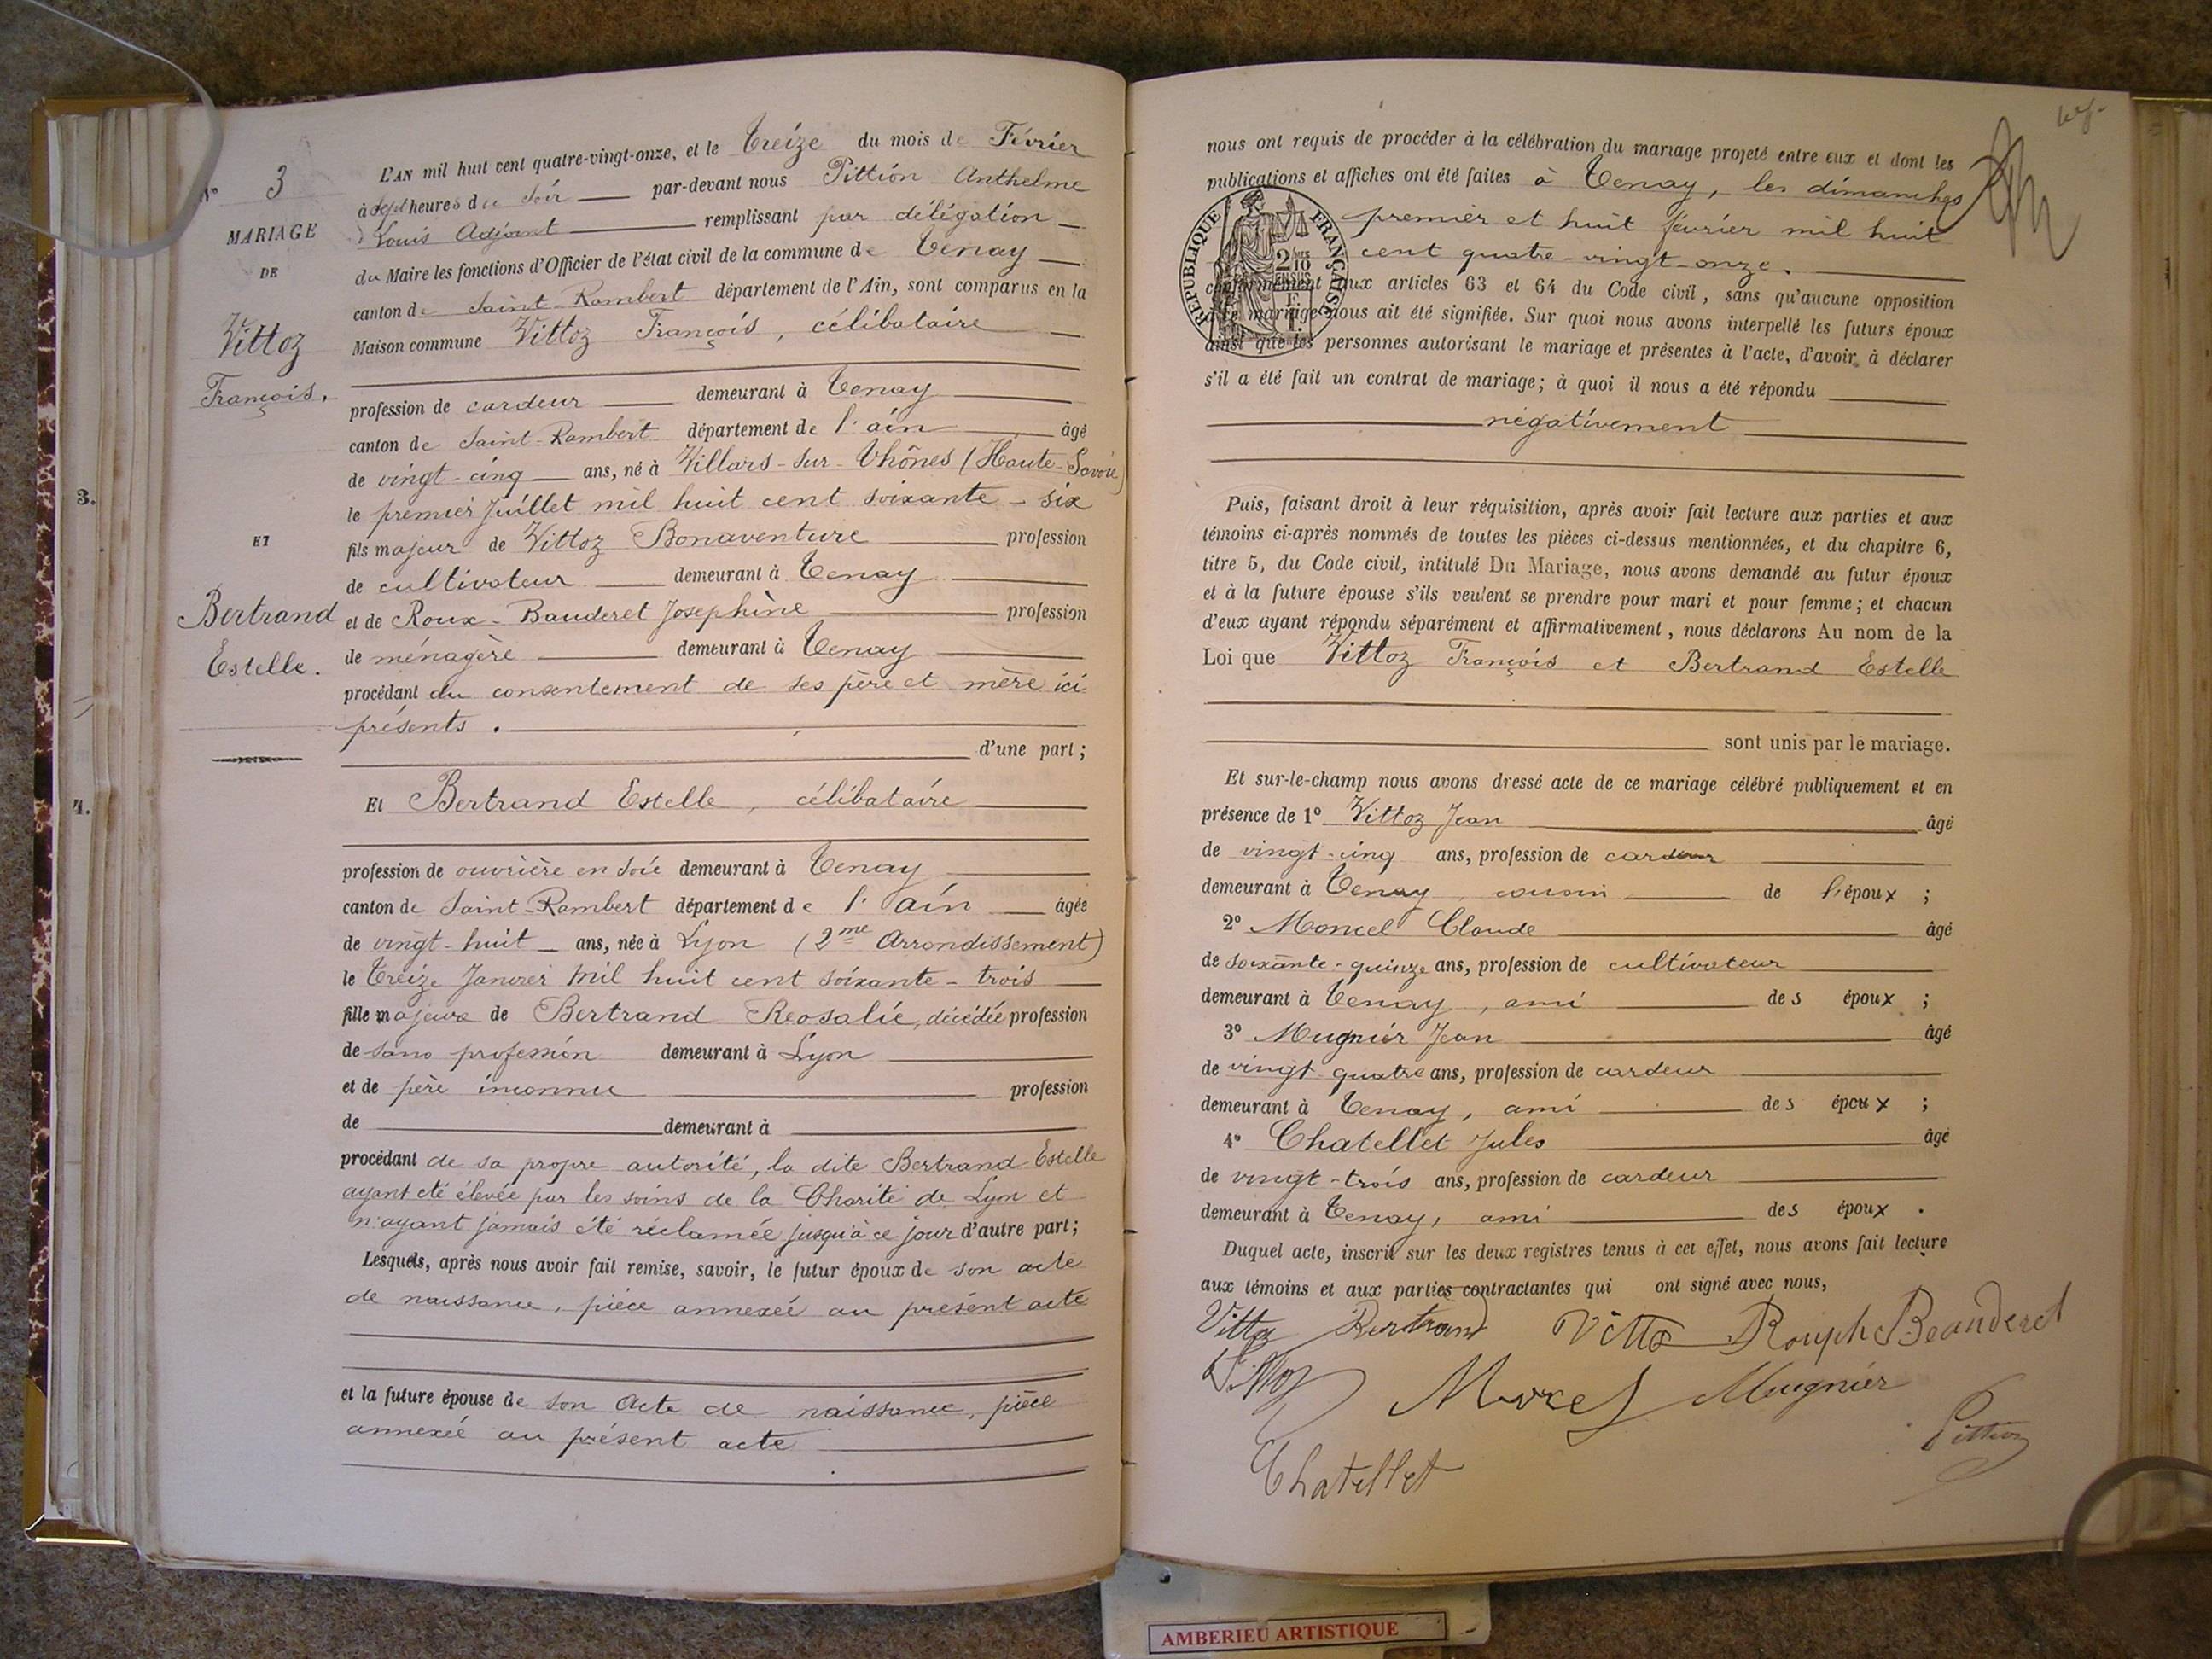 N° 3
MARIAGE
DE
Vittoz
François.
ET
Bertrand
Estelle.
3.
4.
L'AN mil huit cent quatre-vingt-onze, et le treize du mois de Février
à sept heures du soir par-devant nous Pittion Anthelme
Louis Adjoint remplissant par délégation
du Maire les fonctions d'Officier de l'état civil de la commune de Tenay
canton de Saint-Rambert département de l'Ain, sont comparus en la
Maison commune Vittoz François, célibataire
profession de cardeur demeurant à Tenay
canton de Saint-Rambert département de l'ain âgé
de vingt-cinq ans, né à Villars-sur-Thônes (Haute-Savoie)
le premier Juillet mil huit cent soixante-six
fils majeur de Vittoz Bonaventure profession
de cultivateur demeurant à Tenay
et de Roux-Bauderet Josephine profession
de ménagère demeurant à Tenay
procédant du consentement de ses père et mère ici
présents.
d'une part;
Et Bertrand Estelle, célibataire
profession de ouvrière en soie demeurant à Tenay
canton de Saint-Rambert département de l'ain âgée
de vingt-huit ans, née à Lyon (2me Arrondissement)
le treize Janvier mil huit cent soixante-trois
fille majeure de Bertrand Rosalie, décédée profession
de sans profession demeurant à Lyon
et de père inconnu profession
de demeurant à
procédant de sa propre autorité, la dite Bertrand Estelle
ayant été élevée par les soins de la Charité de Lyon et
n'ayant jamais été réclamée jusqu'à ce jour d'autre part;
Lesquels, après nous avoir fait remise, savoir, le futur époux de son acte
de naissance, pièce annexée au présent acte
et la future épouse de son acte de naissance, pièce
annexée au présent acte
nous ont requis de procéder à la célébration du mariage projeté entre eux et dont les
publications et affiches ont été faites à Tenay, les dimanches
premier et huit février mil huit
cent quatre-vingt-onze.
RÉPUBLIQUE FRANÇAISE
2/10
EN SUS
conformément aux articles 63 et 64 du Code civil, sans qu'aucune opposition
à ce mariage nous ait été signifiée. Sur quoi nous avons interpellé les futurs époux
ainsi que les personnes autorisant le mariage et présentes à l'acte, d'avoir à déclarer
s'il a été fait un contrat de mariage; à quoi il nous a été répondu
négativement
Puis, faisant droit à leur réquisition, après avoir fait lecture aux parties et aux
témoins ci-après nommés de toutes les pièces ci-dessus mentionnées, et du chapitre 6,
titre 5, du Code civil, intitulé Du Mariage, nous avons demandé au futur époux
et à la future épouse s'ils veulent se prendre pour mari et pour femme; et chacun
d'eux ayant répondu séparément et affirmativement, nous déclarons Au nom de la
Loi que Vittoz François et Bertrand Estelle
sont unis par le mariage.
Et sur-le-champ nous avons dressé acte de ce mariage célébré publiquement et en
présence de 1° Vittoz Jean âgé
de vingt-cinq ans, profession de cardeur
demeurant à Tenay, cousin de l'époux;
2° Morcel Claude âgé
de soixante-quinze ans, profession de cultivateur
demeurant à Tenay, ami des époux;
3° Mugnier Jean âgé
de vingt quatre ans, profession de cardeur
demeurant à Tenay, ami des époux;
4° Chatellet Jules âgé
de vingt-trois ans, profession de cardeur
demeurant à Tenay, ami des époux.
Duquel acte, inscrit sur les deux registres tenus à cet effet, nous avons fait lecture
aux témoins et aux parties contractantes qui ont signé avec nous,
Vittoz Bertrand Vittoz Rouph Beauderet
Vittoz Morcel Mugnier
Pittion
Chatellet
AMBERIEU ARTISTIQUE